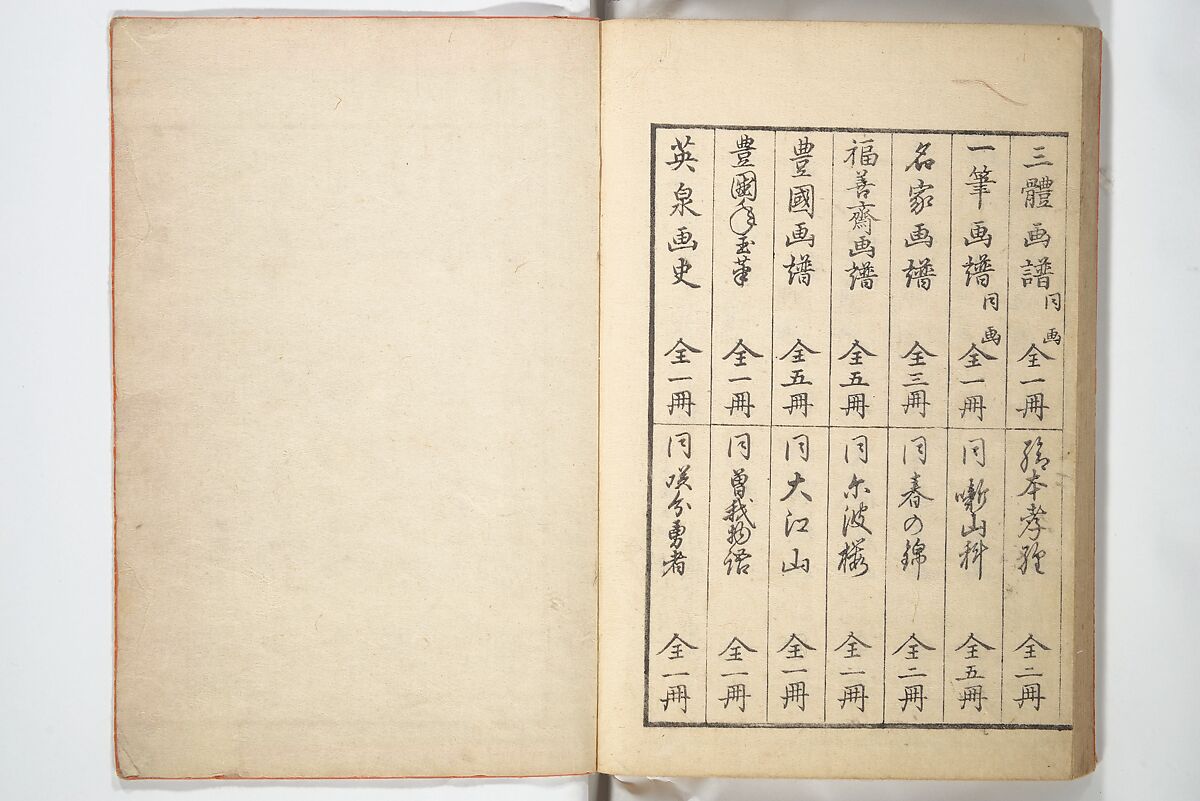 三體画譜 同画 全一冊
一筆画譜 同画 全一冊
名家画譜 全三冊
福善齋画譜 全五冊
豊國画譜 全五冊
豊國年玉筆 全一冊
英泉画史 全一冊
絵本孝經 全二冊
同 噺山科 全五冊
同 春の錦 全二冊
同 尓波桜 全一冊
同 大江山 全一冊
同 曽我物語 全一冊
同 咲分勇者 全一冊